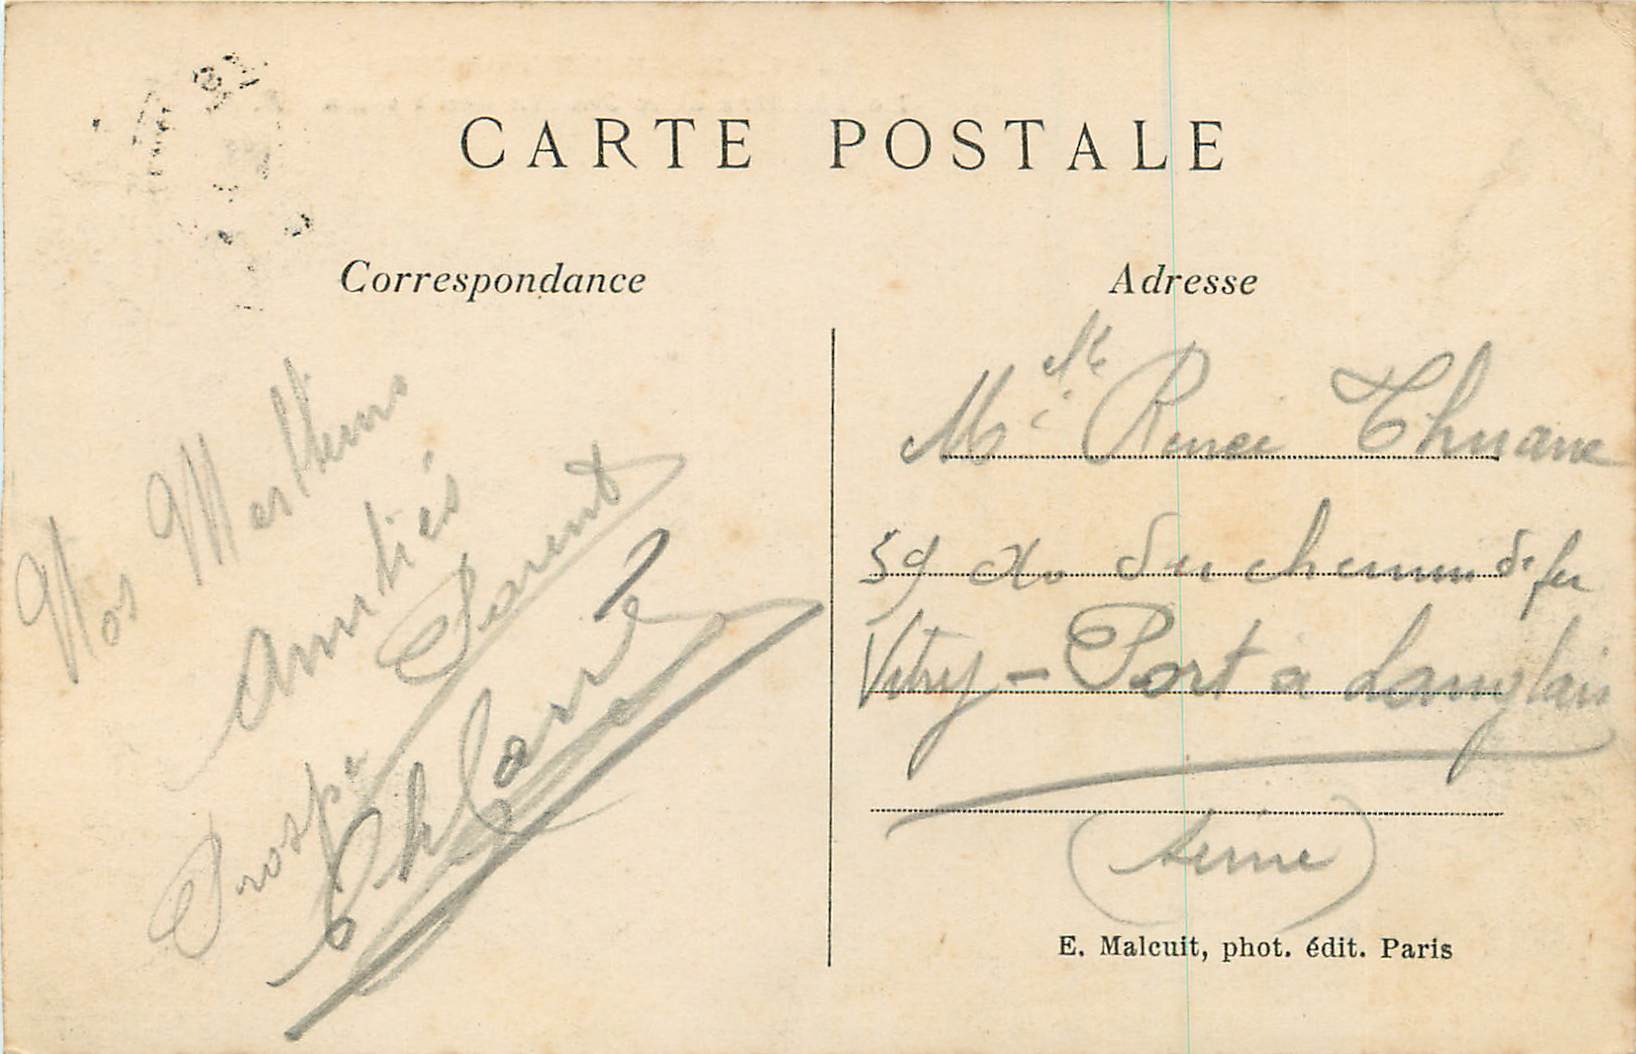 CARTE POSTALE
Correspondance
Nos Meilleurs
Amitiés
Prosper
Adresse
Mlle Renée Thuane
59 du chemin de fer
Vitry - Port à Langlais
(Seine)
E. Malcuit, phot. édit. Paris